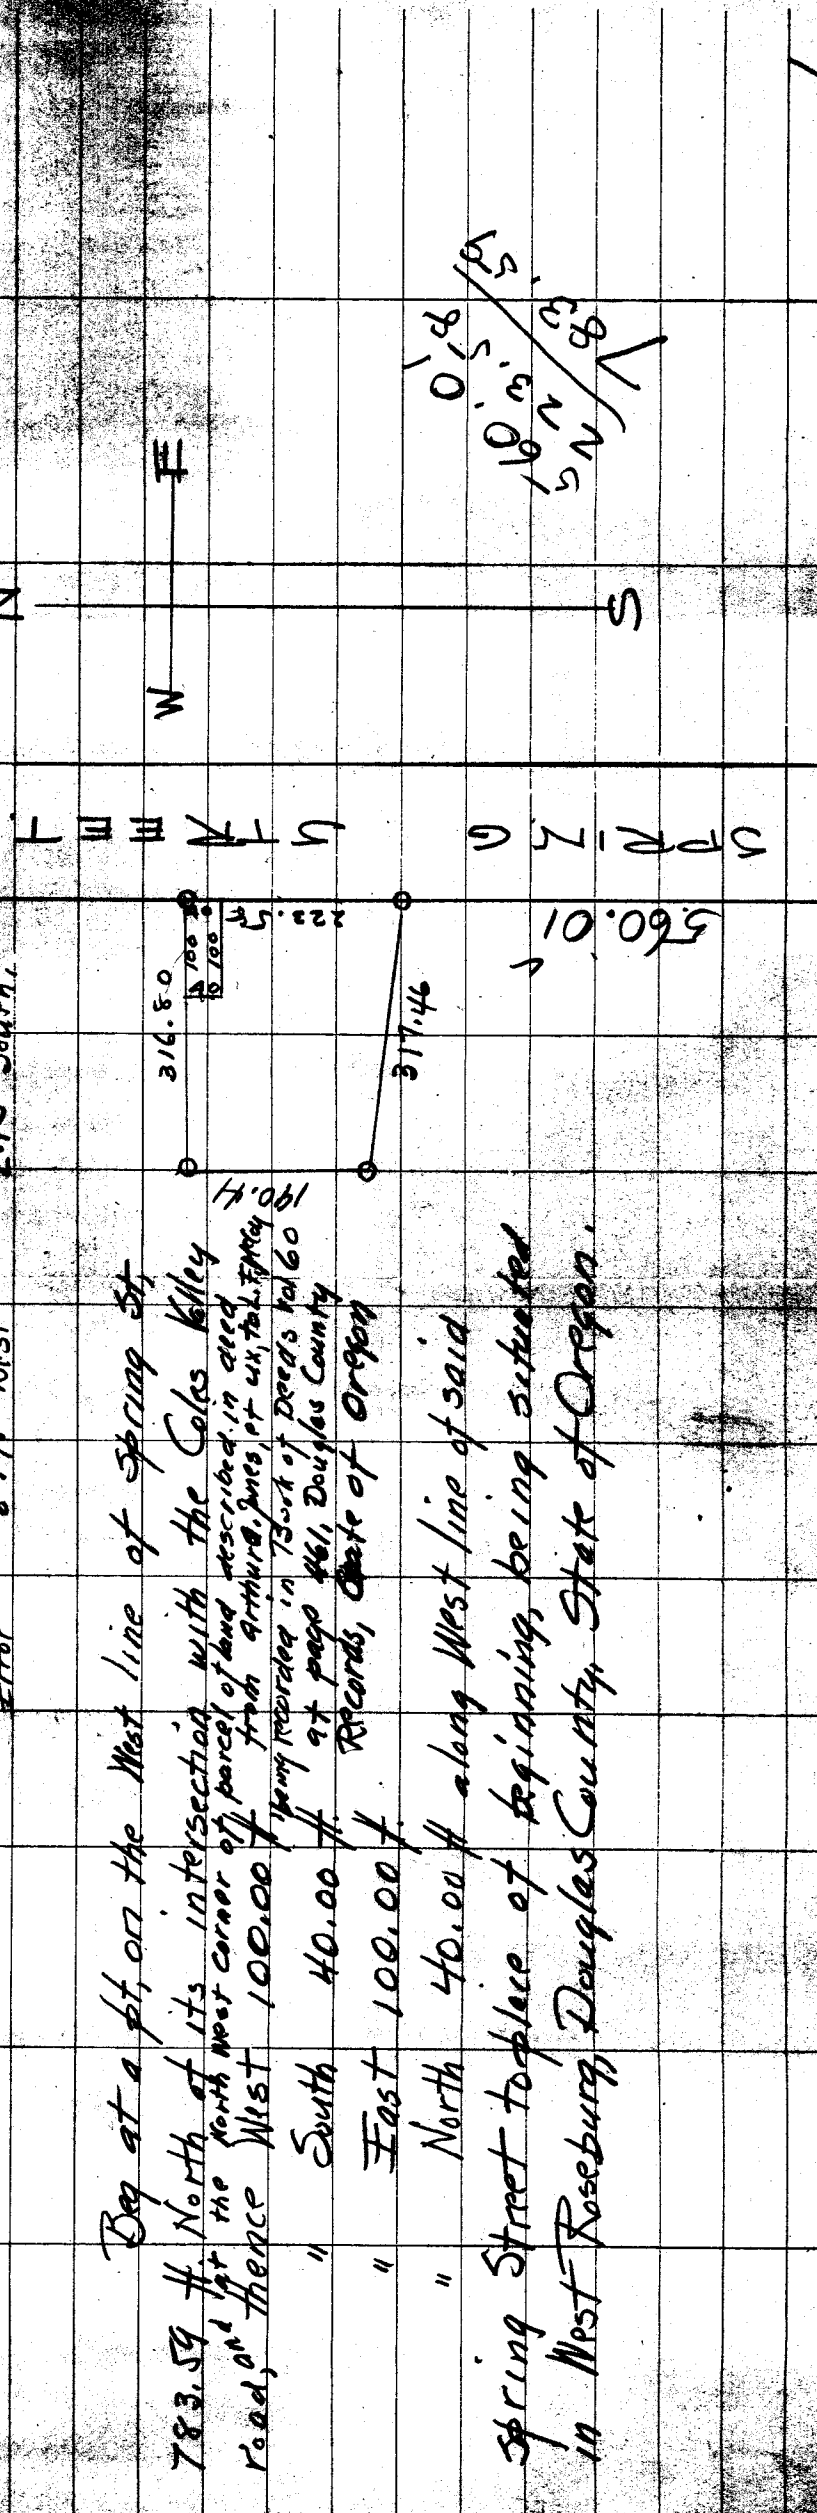 Error
West
South,
Beg at a pt, on the West line of Spring St,
783.59 ft. North of its intersection with the Coles Valley
road, and at the North West corner of parcel of land described in deed
from Arthur Jones, et ux, to
being recorded in Book of Deeds Vol 60
at page 461, Douglas County
Records, State of Oregon
thence West 100.00 ft
" South 40.00 ft.
" East 100.00 ft.
" North 40.00 ft along West line of said
Spring Street to place of beginning, being situated
in West Roseburg, Douglas County, State of Oregon.
316.80
100
100
223.58
190.4
317.46
SPRING STREET
560.01
N
W E
S
560.01
223.58
783.59